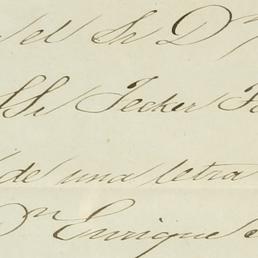 el Sr D
SS. Jecker To
de una letra
Dn Enrique